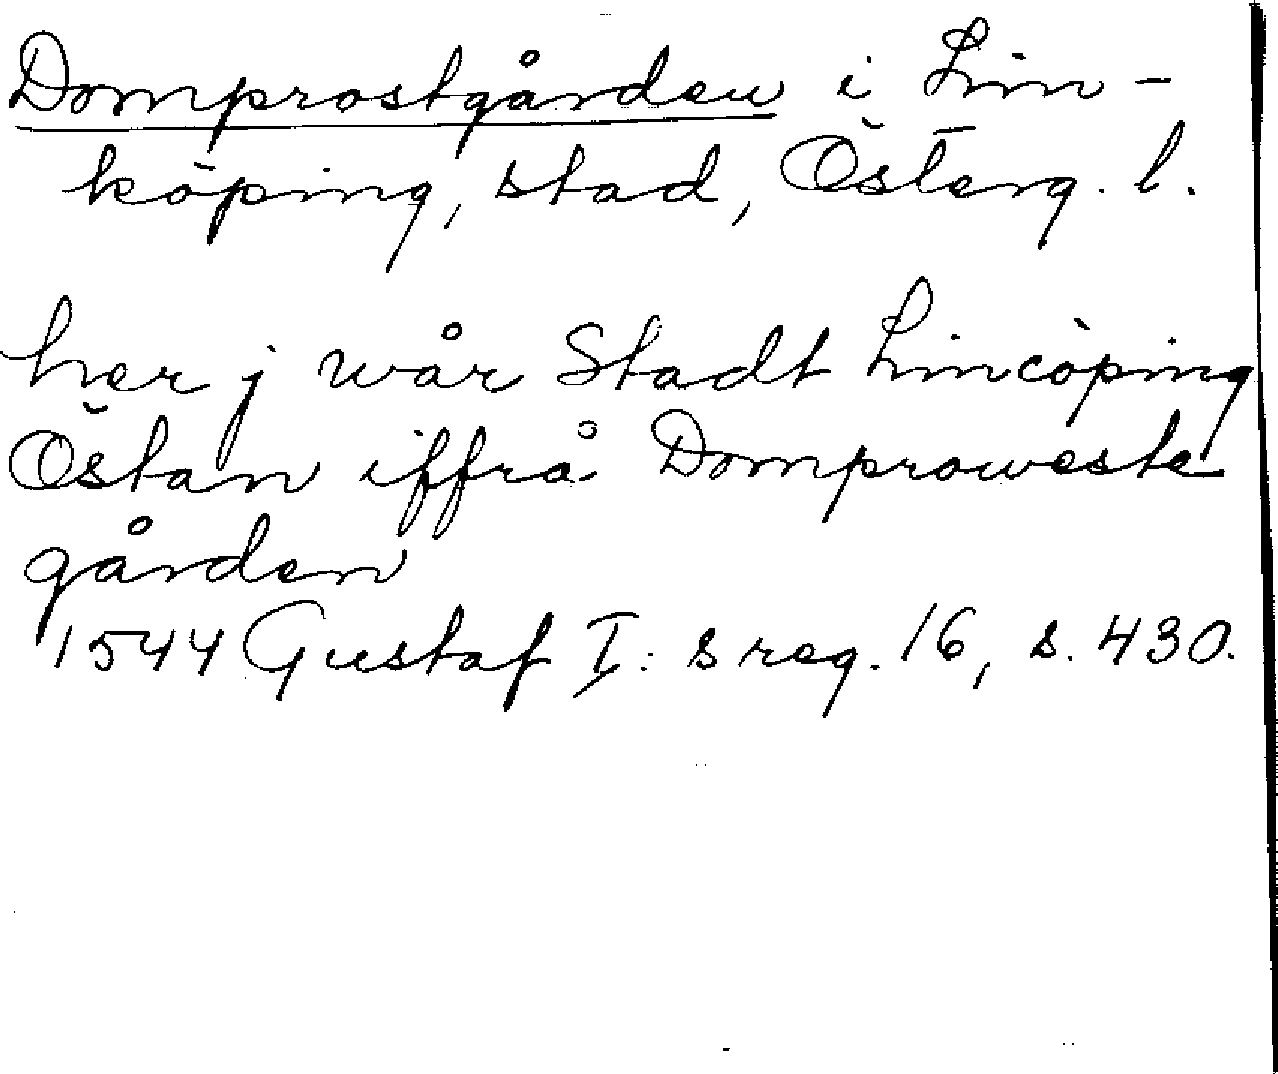 Domprostgården i Lin-
köping, stad, Österg. l.
her j wår Stadt Lincöping
Östan iffrå Domproweste
gården
1544 Gustaf I:s reg. 16, s. 430.